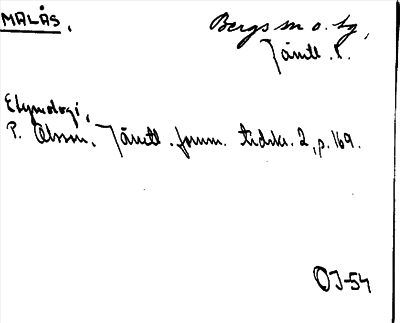 MALÅS.
Bergs sn o. tg,
Jämtl. l.
Etymologi,
P. Olsson, Jämtl. fornm. tidskr. 2, p. 169.
OJ-54